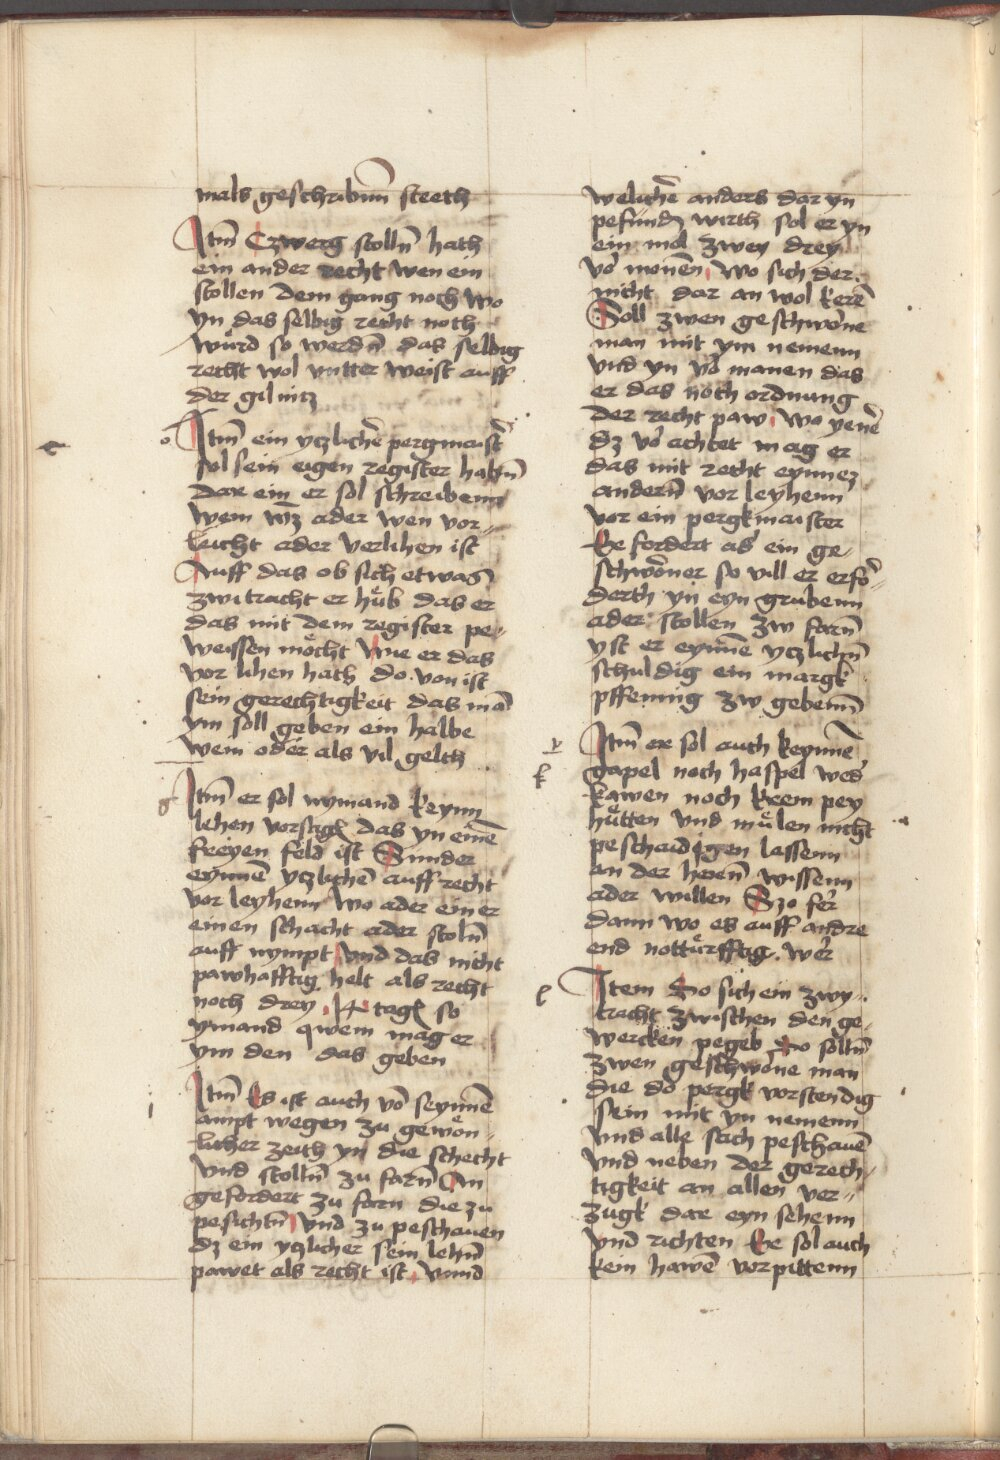 mals geschribnn̄ steeth
Itm̄ Czwerg stolln̄ hath
ein ander recht wen ein
stollen dem gang noch wo
yn das selbig recht noch
würd so werdn̄ das selbig
recht wol vntter weist auff
der gilnitz
Itm̄ ein yczlichē pergmaistē
sol sein eigen register habn̄
dar ein er sol schreibenn
wem wz ader wen vor-
leicht ader verlihen ist
Auff das ob sich etwas
zwitracht er hüb das er
das mit dem register pe-
weissen möcht Wie er das
vor lihen hath do von ist
sein gerechtigkeit das mā
ym soll geben ein halbe
wem oder als vil gelth
g Itm̄ er sol nymand keynn
lehen vorsagē das yn einē
freyen feld ist Sunder
eynnē yczlichē auff recht
vor leyhenn wo ader einer
einen schacht ader stoln̄
auff nympt vnd das nicht
pawhafftig helt als recht
noch drey 14 tagē so
ymand qwem mag er
ym den das geben
i Itm̄ Es ist auch vō seynnē
ampt wegen zu gewön-
licher zeith yn die schecht
vnd stolln̄ zu farn̄ An
gefordert zu farn die zu
pesichtn̄ vnd zu peschauen
dz ein yczlicher sein lehn̄
pawet als recht ist vnnd
welichē anders dar yn
pefundn̄ wirth sol er yn
ein mol zwey drey
vō monen wo sich der
nicht dar an wol kerē
Soll zwen geschwōne
man mit ym nemenn
vnd yn vō manen das
er das noch ordnung
der recht paw wo yenē
dz vō achtet mag er
das mit recht eynnez
andern̄ vor leyhenn
vor ein pergkmaister
Er fordert as ein ge-
schwöner so vill er erfō-
derth yn eyn grubenn
ader stollen zw farn̄
yst er eynnē yczlichn̄
schuldig ein margk
pffennig zw gebenn̄
k Itm̄ er sol auch keynnē
gapel noch haspel wed'
kawen noch krem pey
hütten vnd mülen nicht
peschaidigen lassenn
an der heren̄ wissenn
ader willen Szo fer
dann wo es auff andre
end nottürfftig wer
l Item So sich ein zwy-
tracht zwischen den ge-
wercken pegeb So solln̄
zwen geschwōne man
die do pergk vorstendig
sein mit yn nemenn
vnd alle sach peschauē
vnd neben der gerech-
tigkeit an allen ver-
zugk dar eyn sehenn
vnd richten Er sol auch
kein hawē vorpittenn